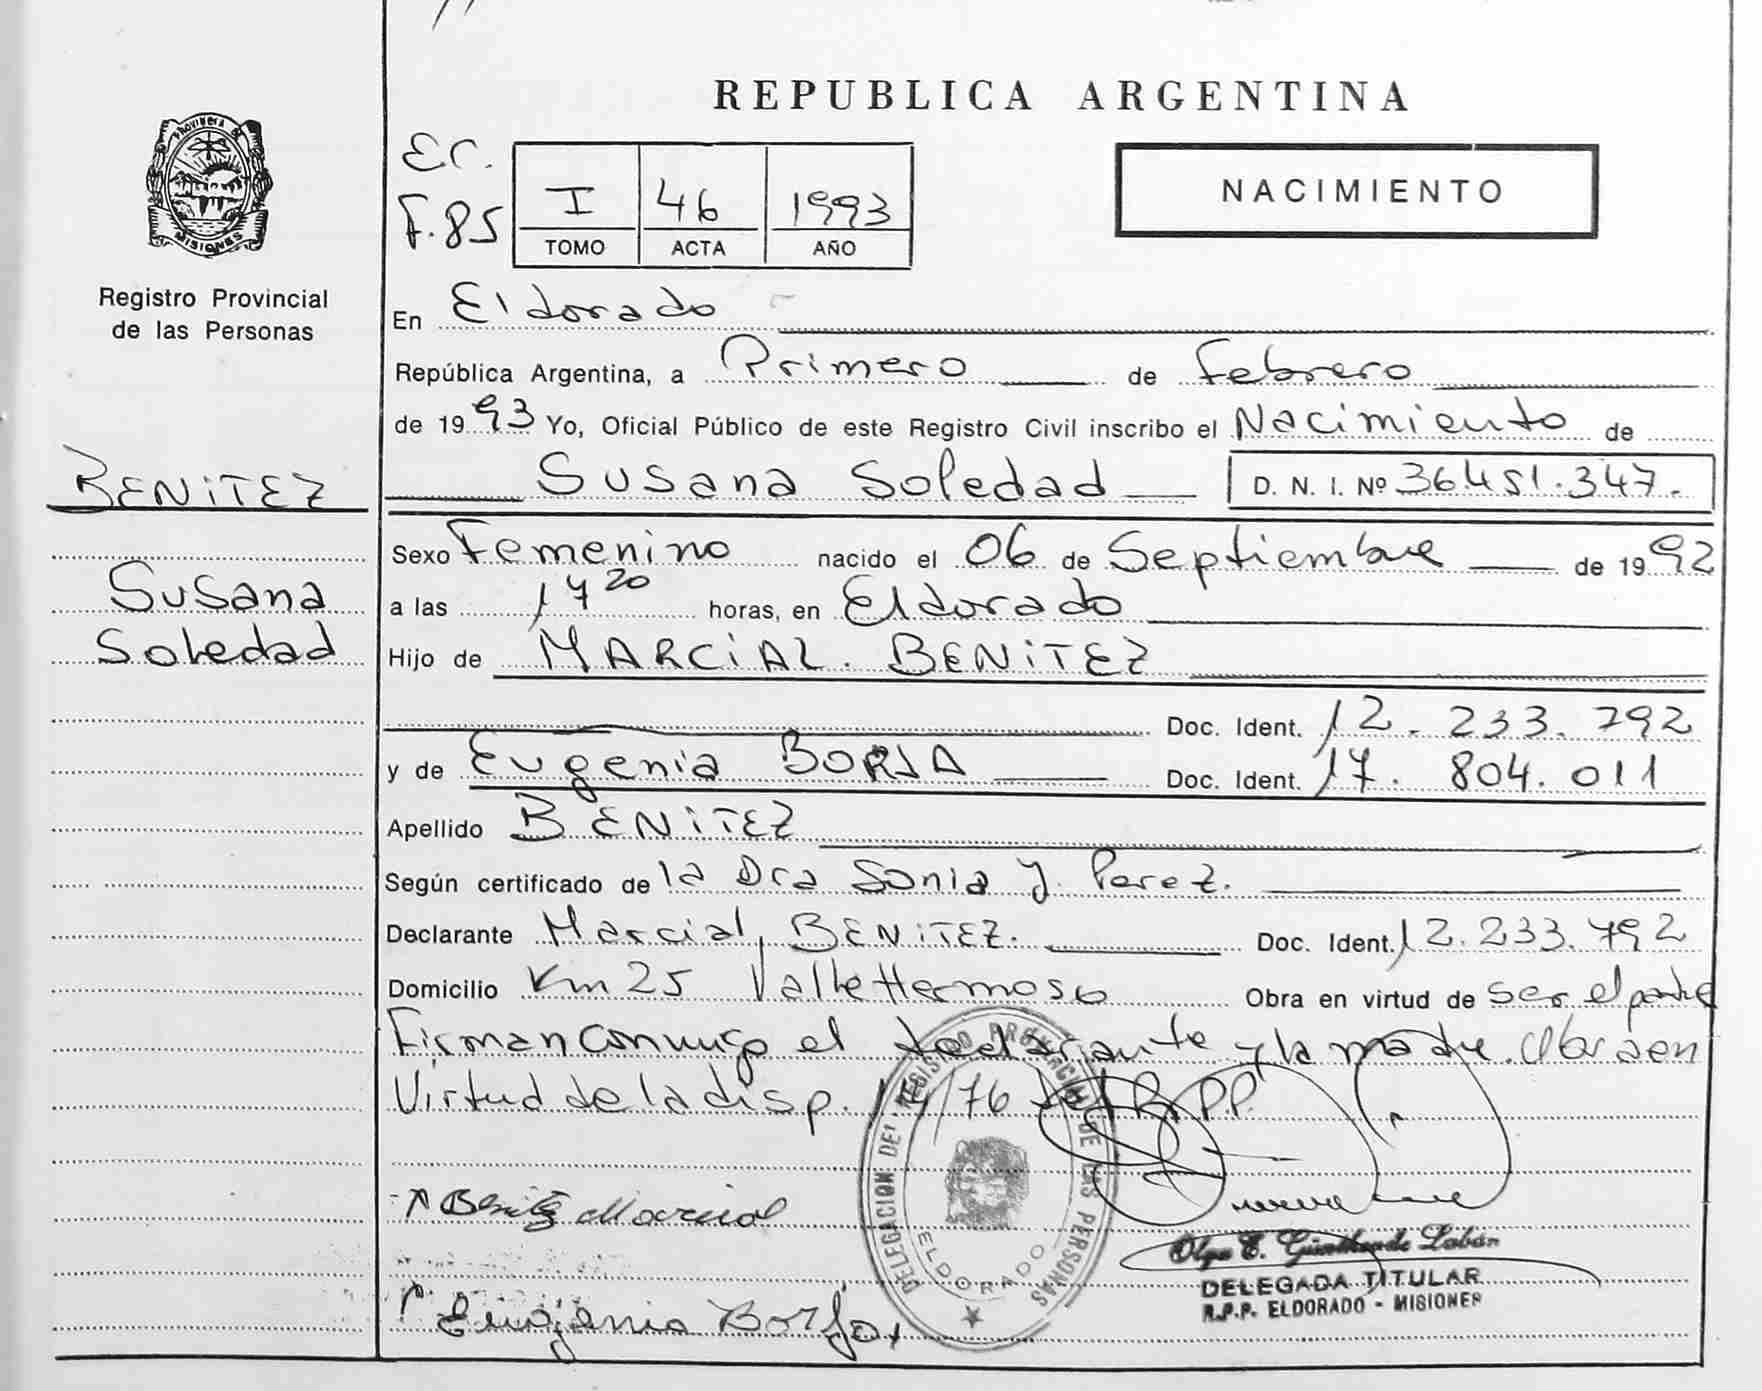 REPUBLICA ARGENTINA
PROVINCIA DE
MISIONES
Registro Provincial
de las Personas
Er.
F.85
I 46 1993
TOMO ACTA AÑO
NACIMIENTO
En Eldorado
República Argentina, a Primero de Febrero
de 1993 Yo, Oficial Público de este Registro Civil inscribo el Nacimiento de
BENITEZ
Susana Soledad D. N. I. Nº 36451.347.
Sexo Femenino nacido el 06 de Septiembre de 1992
Susana
a las 17 20 horas, en Eldorado
Soledad
Hijo de MARCIAL BENITEZ
Doc. Ident. 12.233.792
y de Eugenia BORJA Doc. Ident. 17.804.011
Apellido BENITEZ
Según certificado de la Dra Sonia J. Perez.
Declarante Marcial, BENITEZ. Doc. Ident. 12.233.792
Domicilio Km 25 Valle Hermoso Obra en virtud de ser el padre
Firman conmigo el declarante y la madre. Obra en
Virtud de la disp. 14/76 del R.P.P.
Benitez Marcial
Eugenia Borja
DELEGACION DEL REGISTRO PROVINCIAL DE LAS PERSONAS
ELDORADO
Olga E. de Labán
DELEGADA TITULAR
R.P.P. ELDORADO - MISIONES